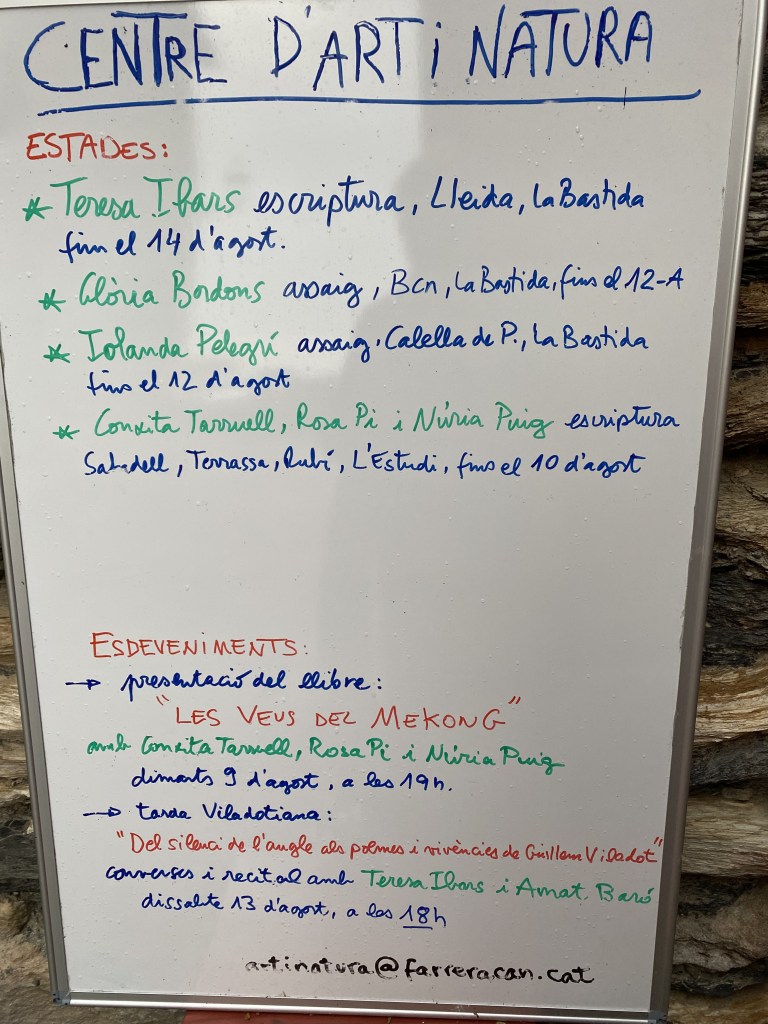 CENTRE D'ART i NATURA
ESTADES:
* Teresa Ibars escriptura, Lleida, La Bastida
fins el 14 d'agost.
* Glòria Bordons assaig, Bcn, La Bastida, fins el 12-A
* Iolanda Pelegrí assaig. Calella de P., La Bastida
fins el 12 d'agost
* Conxita Tarruell, Rosa Pi i Núria Puig escriptura
Sabadell, Terrassa, Rubí, L'Estudi, fins el 10 d'agost
ESDEVENIMENTS:
→ presentació del llibre:
"LES VEUS DEL MEKONG"
amb Conxita Tarruell, Rosa Pi i Núria Puig
dimarts 9 d'agost, a les 19h.
→ tarda Viladotiana:
"Del silenci de l'angle als poemes i vivències de Guillem Viladot"
converses i recital amb Teresa Ibars i Amat Baró
dissabte 13 d'agost, a les 18h
artinatura@farreracan.cat